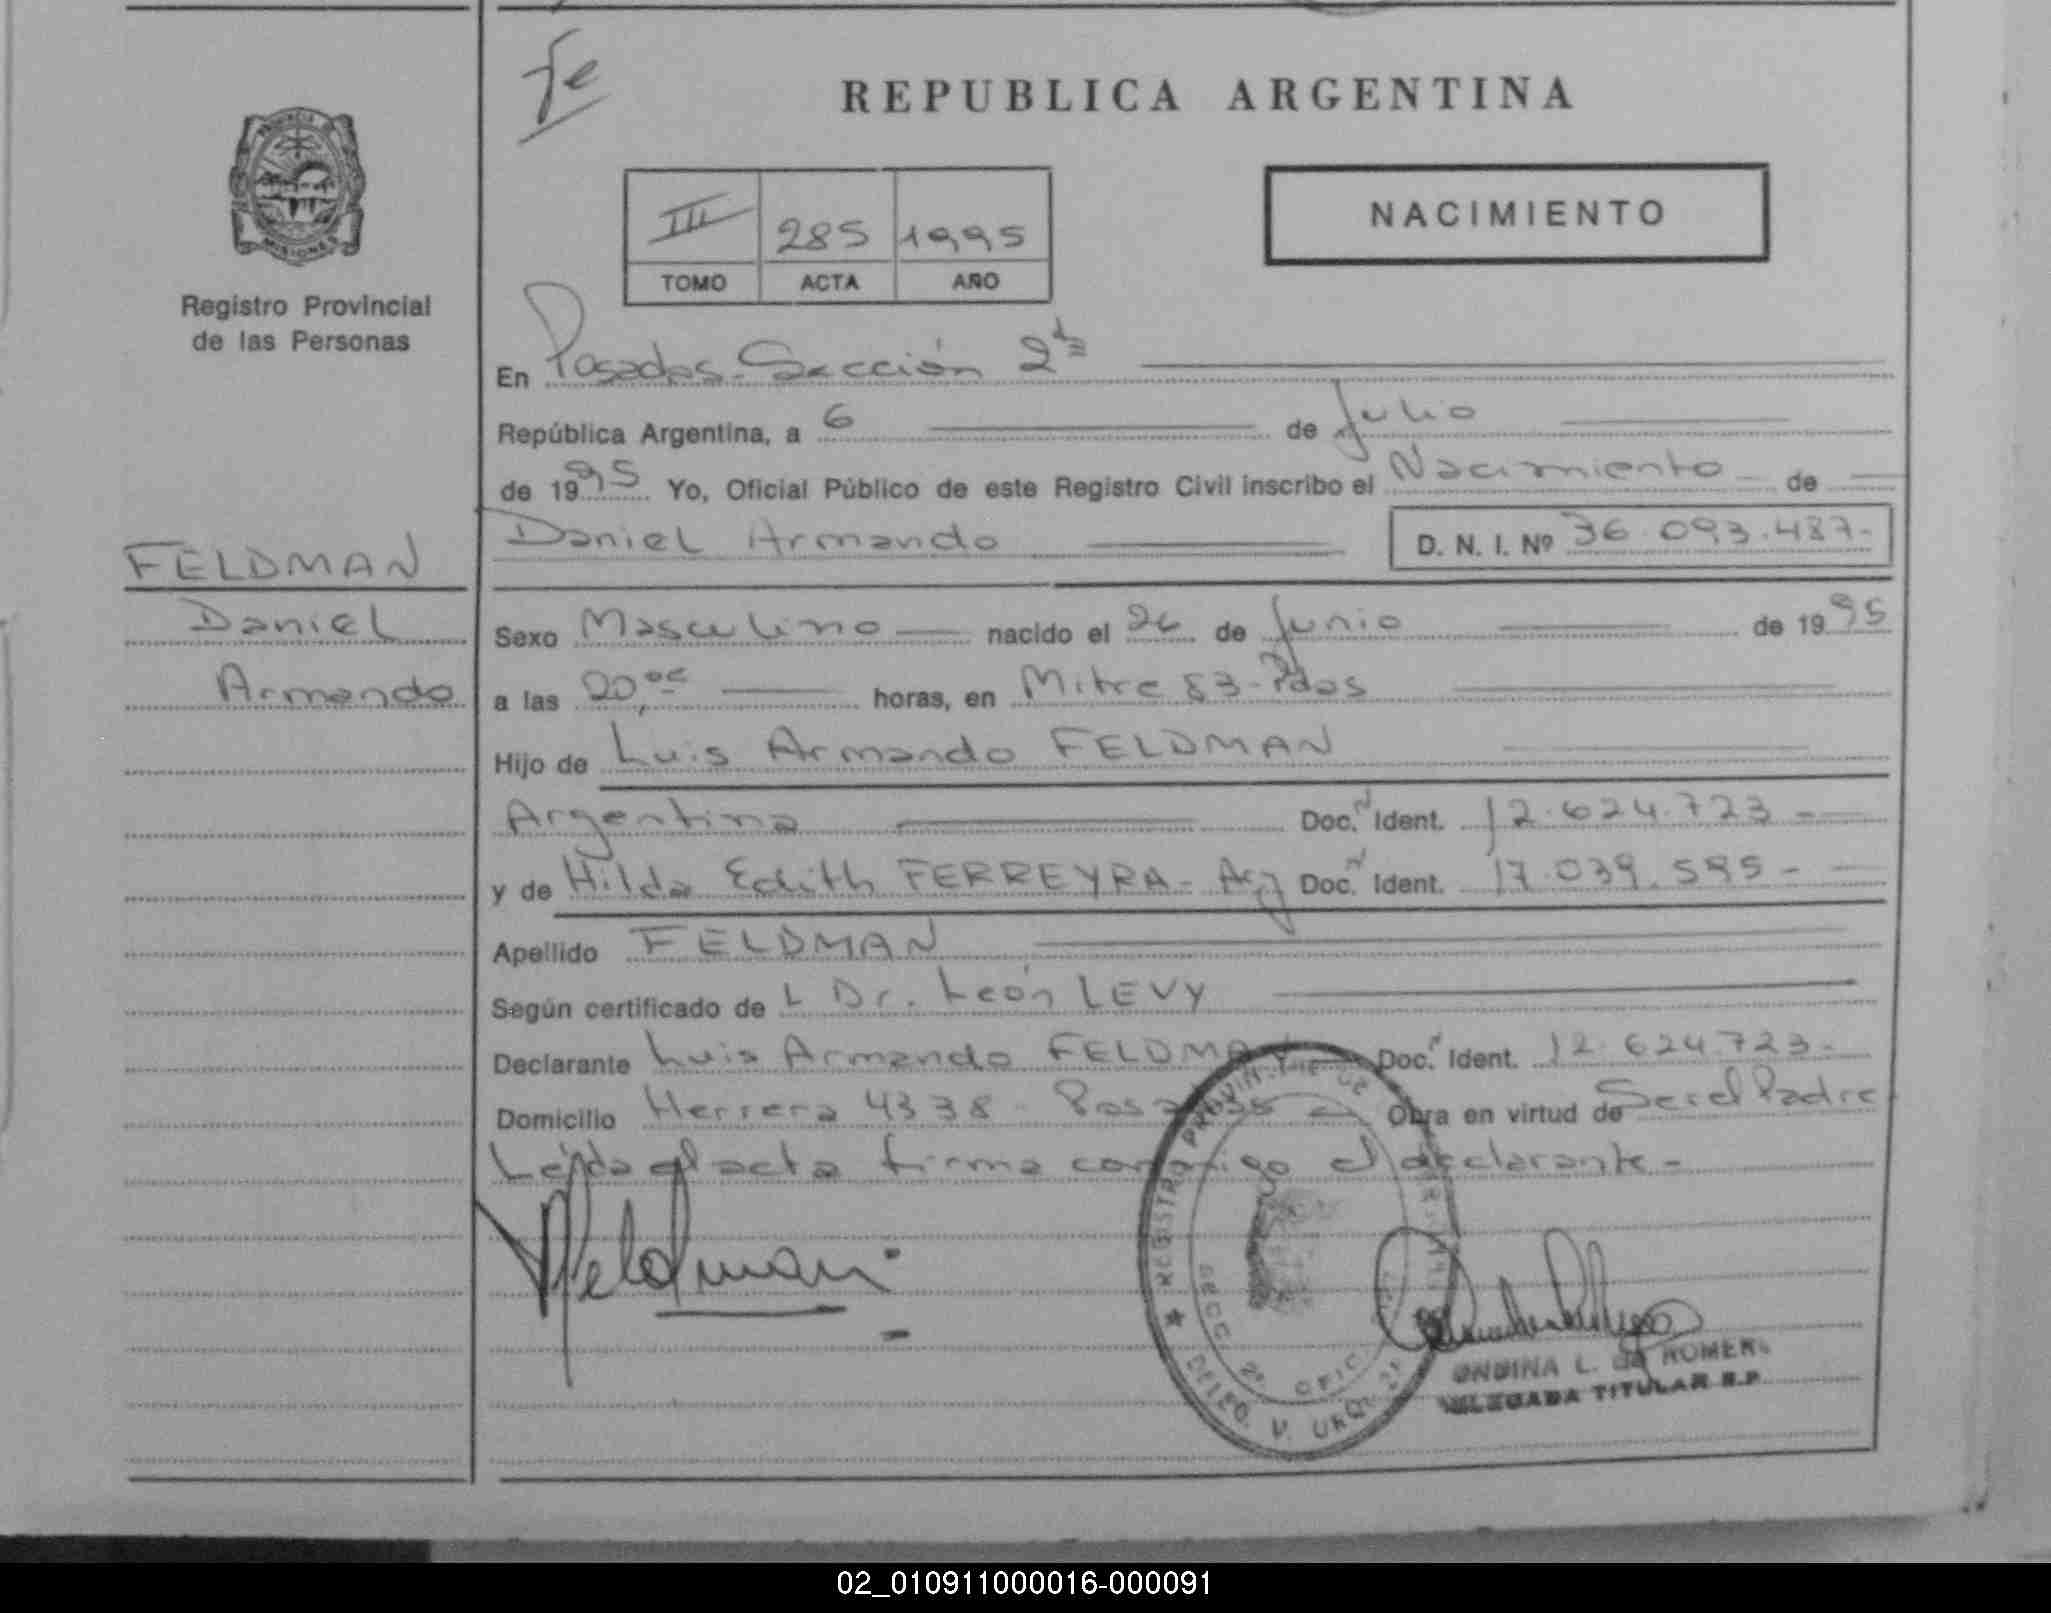 Fe
REPUBLICA ARGENTINA
PROVINCIA DE
MISIONES
III 285 1995
TOMO ACTA AÑO
NACIMIENTO
Registro Provincial
de las Personas
En Posadas-Sección 2da
República Argentina, a 6 de Julio
de 1995 Yo, Oficial Público de este Registro Civil inscribo el Nacimiento de
Daniel Armando D. N. I. Nº 36.093.487-
FELDMAN
Daniel
Armando
Sexo Masculino nacido el 26 de Junio de 1995
a las 20,00 horas, en Mitre 83-Pdas
Hijo de Luis Armando FELDMAN
Argentina Doc. N Ident. 12.624.723-
y de Hilda Edith FERREYRA- Arg Doc. N Ident. 17.039.595-
Apellido FELDMAN
Según certificado de L Dr. León LEVY
Declarante Luis Armando FELDMAN Doc. N Ident. 12.624.723-
Domicilio Herrera 4338 - Posadas - Obra en virtud de Ser el Padre
Leída el acta firma conmigo el declarante-
Feldman
REGISTRO
SECC. 2ª OFIC.
ONDINA L. de ROMERO
DELEGADA TITULAR R.P.
02_010911000016-000091